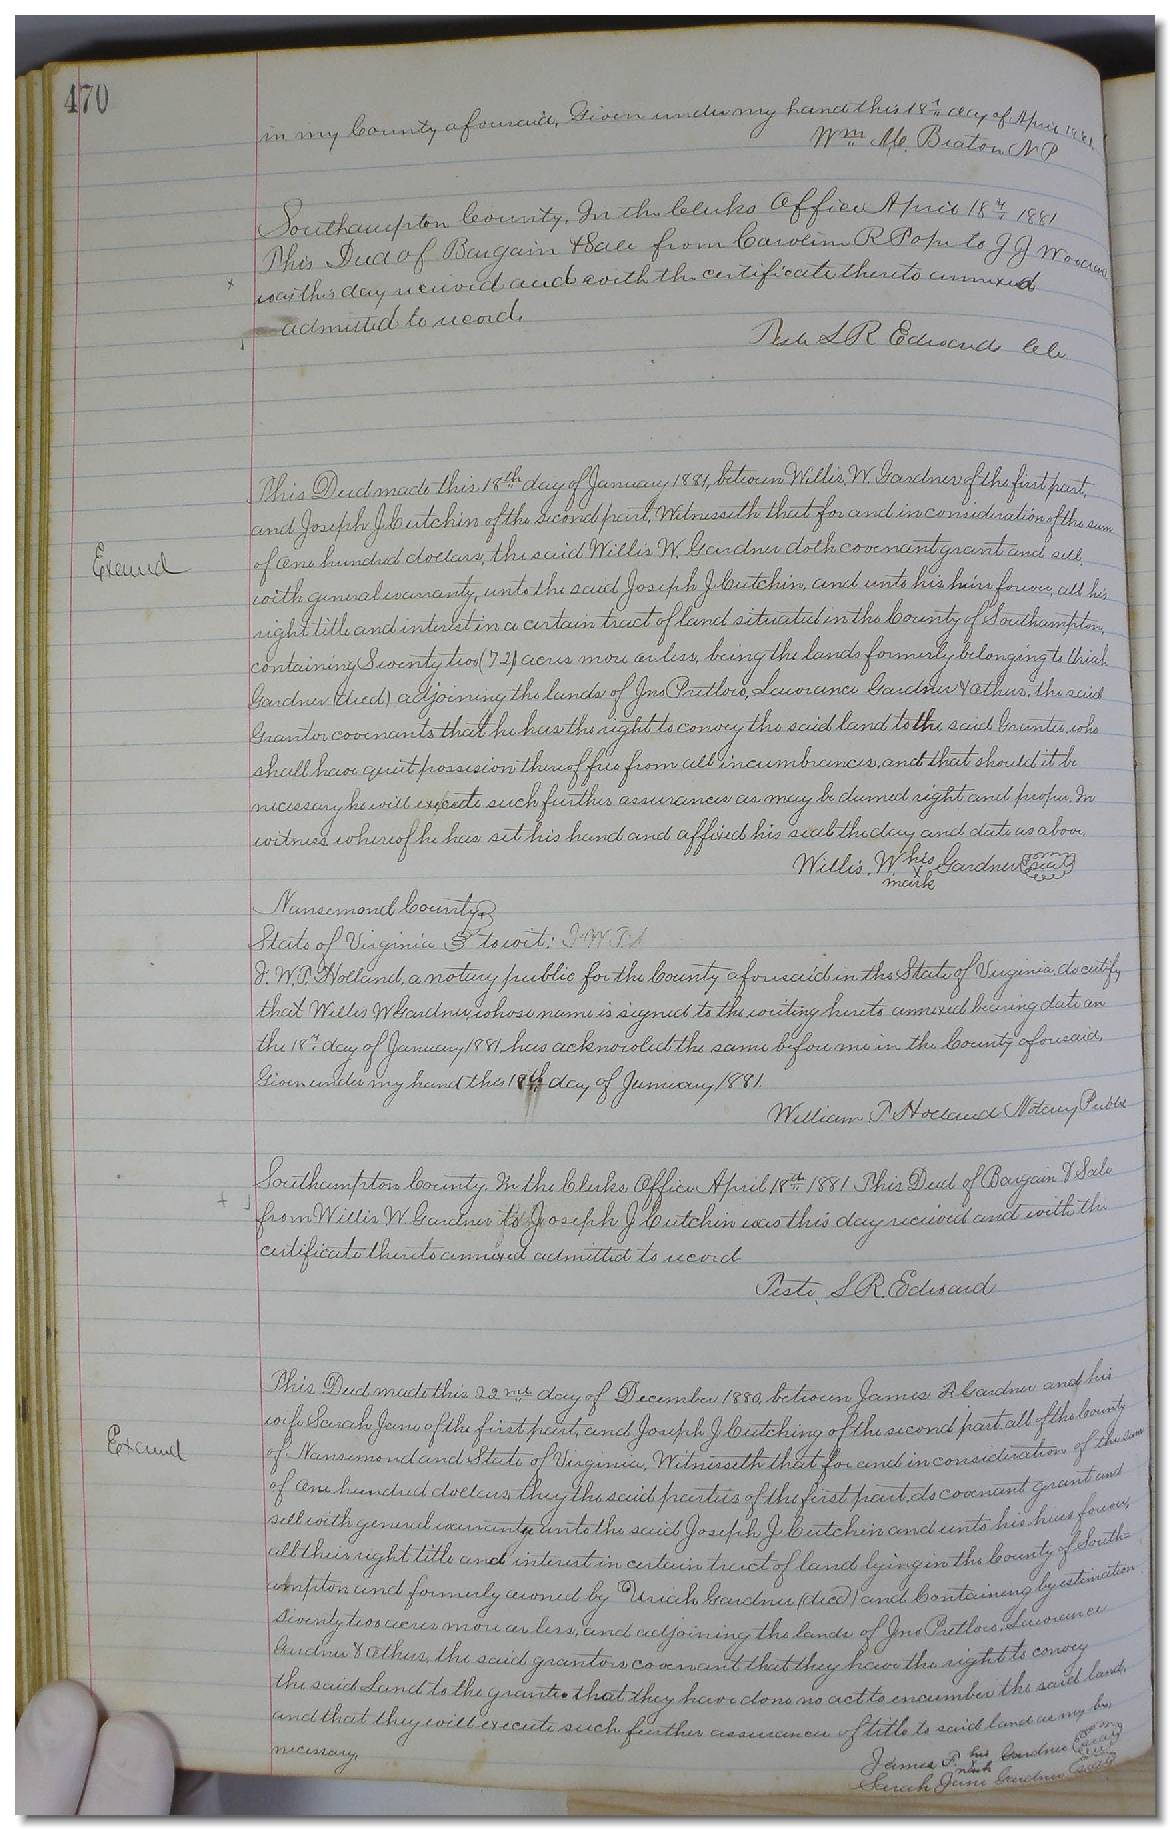 470
in my County aforesaid, Given under my hand this 18th day of April 1881
Wm M. Beaton N P
Southampton County, In the Clerks Office April 18th 1881
This Deed of Bargain & Sale from Caroline R Pope to J J
was this day received and with the certificate thereto annexed
admitted to record.
Teste S R Edwards Clk
This Deed made this 18th day of January 1881, between Willis, W. Gardner of the first part,
and Joseph J. Cutchin of the second part, Witnesseth that for and in consideration of the sum
Exmd
of One hundred dollars, the said Willis W. Gardner doth covenant grant and sell,
with general warranty, unto the said Joseph J. Cutchin, and unto his heirs forever, all his
right title and interest in a certain tract of land situated in the County of Southampton,
containing Seventy two (72) acres more or less, being the lands formerly belonging to Uriah
Gardner (died) adjoining the lands of Jno Pretlow, Lawrence Gardner & others, the said
Grantor covenants that he has the right to convey the said land to the said Grantee, who
shall have quiet possesion thereof free from all incumbrances, and that should it be
necessary he will execute such further assurances as may be deemed right and proper. In
witness whereof he has set his hand and affixed his seal the day and date as above.
Willis. W his x mark Gardner seal
Nansemond County
State of Virginia } to wit: I W P
I. W. P. Holland, a notary public for the County aforesaid in the State of Virginia, do certify
that Willis W Gardner, whose name is signed to the writing hereto annexed bearing date on
the 18th day of January 1881, has acknowled the same before me in the County aforesaid.
Given under my hand this 18th day of January 1881.
William P Holland Notary Public
Southampton County In the Clerks Office April 18th 1881 This Deed of Bargain & Sale
from Willis W Gardner to Joseph J Cutchin was this day received and with the
certificate thereto annexed admitted to record
Teste, S. R. Edward
This Deed made this 22nd day of December 1880, between James Gardner and his
wife Sarah Jane of the first part, and Joseph J. Cutching of the second part, all of the County
Exmd
of Nansemond and State of Virginia, Witnesseth that for and in consideration of the sum
of One hundred dollars, they the said parties of the first part, do covenant grant and
sell with general warranty, unto the said Joseph J. Cutchin and unto his heirs forever,
all their right title and interest in certain tract of land lying in the County of South-
ampton and formerly owned by Uriah Gardner (died) and Containing by estimation
Seventy two acres more or less, and adjoining the lands of Jno Pretlow, Lawrence
Gardner & Others, the said grantors covenant that they have the right to convey
the said Land to the grantee that they have done no act to encumber the said land,
and that they will execute such further assurances of title to said land as my be
necessary.
James F. his x mark Gardner seal
Sarah Jane Gardner seal